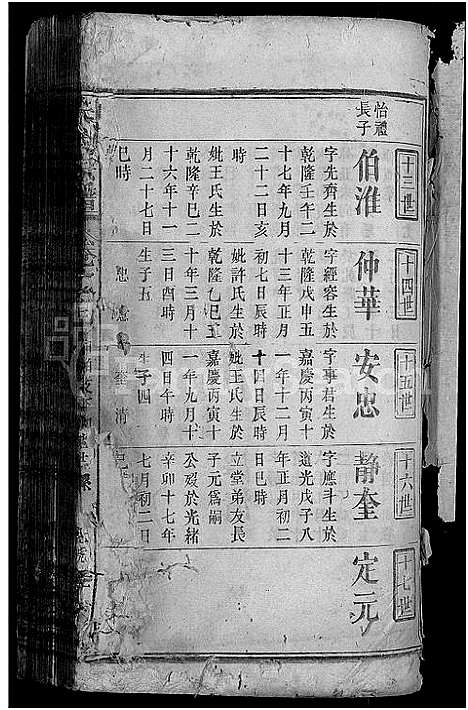 十三世
怡禮
長子
伯淮
字先齊生於
乾隆壬午二
十七年九月
二十二日亥
時
妣王氏生於
乾隆辛巳二
十六年十一
月二十七日
巳時
十四世
仲華
字經容生於
乾隆戊申五
十三年正月
初七日辰時
妣許氏生於
乾隆乙巳五
十年三月十
三日酉時
生子五
十五世
安忠
字事君生於
嘉慶丙寅十
一年十二月
十四日辰時
妣王氏生於
嘉慶丙寅十
一年九月十
四日午時
生子四
十六世
靜奎
字應斗生於
道光戊子八
年正月初二
日巳時
立堂弟友長
子元爲嗣
公歿於光緒
辛卯十七年
七月初二日
十七世
定元